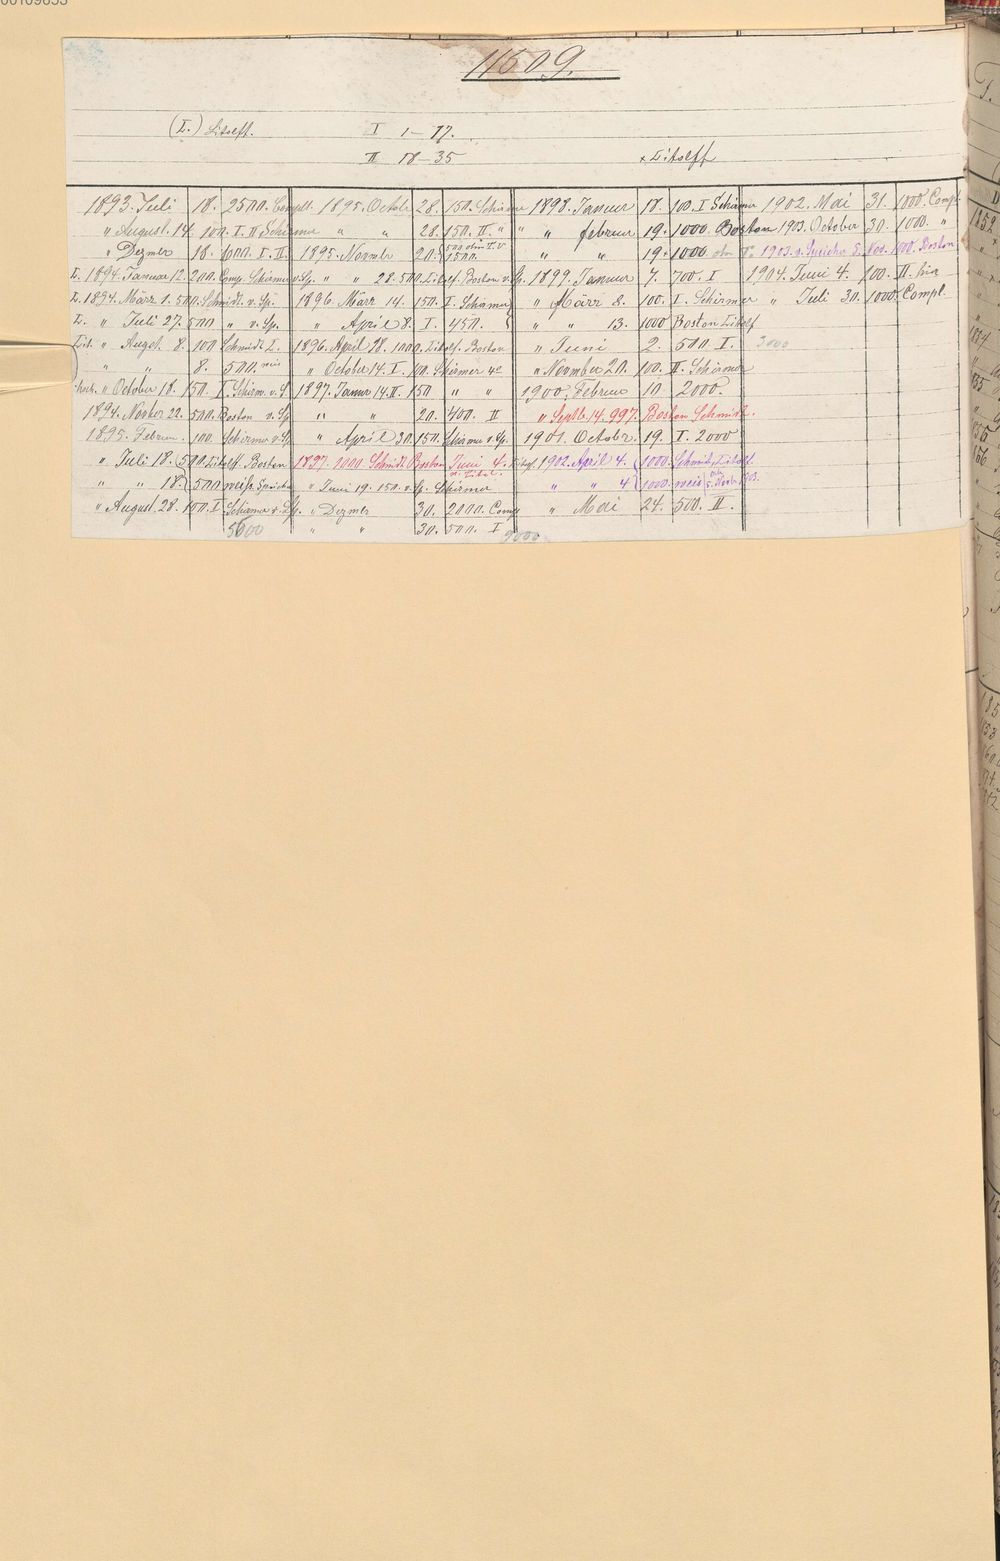 11509.
(L.) Litolff. I 1–17.
II 18–35 × Litolff
1893. Juli 18. 2500. Complt.
" August. 14. 100. I. II Schirmer
" Dezmer 18. 1000. I. II.
L. 1894. Januar 12. 200. Comp. Schirmer v. Sp.
L. 1894. März 1. 500. Schmidt. v. Sp.
L. " Juli 27. 500 " v. Sp.
Lit. " Augst. 8. 100 Schmidt L.
" " 8. 500. neis
" October 18. 150. I. Schirm. v. S
1894. Novber 22. 500. Boston v. Sp
1895. Februar. 100. Schirmer v. Sp
" Juli 18. 500. Litolff. Boston
" " 18. 500 weiss
" August. 28. 100. I Schirmer v. Sp.
5000
1895. Octobr 28. 150. Schirmer
" " 28. 150. II. "
1895. Novmbr 20. 500 ohne II. v. 1500.
" " 28. 500. Litolf. Boston v. Sp.
1896. März 14. 150. I. Schirmer
" April 8. I. 450.
1896. April 28. 1000. Litolf. Boston
" October 14. I. 100. Schirmer
1897. Januar 14. II. 150 " "
" " 20. 400. II
" April 30. 150. Schirmer v. Sp.
1897. 1000 Schmidt Boston Juni 4. Litolf.
" Juni 19. 150. v. Sp. Schirmer
" Dezmer 30. 2000. Comp
" " 30. 500. I
9000
1898. Januar 18. 100. I Schirmer
" " februar 19. 1000. Boston
" " 19 + 1000
1899. Januar 7. 700. I
" März 8. 100. I. Schirmer
" " 13. 1000 Boston Litolf
" Juni 2. 500 I.
" Novmber 20. 100. II. Schirmer
1900. Februar 10 2000.
" Septb. 14. 997. Boston Schmidt.
1901. Octobr. 19. I. 2000
1902. April 4. 1000. Schmidt, Litolf
" " 4 1000. weis
" Mai 24. 500. II.
1902. Mai 31. 1000. Compl
1903. October 30. 1000. "
1903. 5. Nov. 1000. Boston
1904. Juni 4. 100. II.
" Juli 30. 1000. Compl.
3000